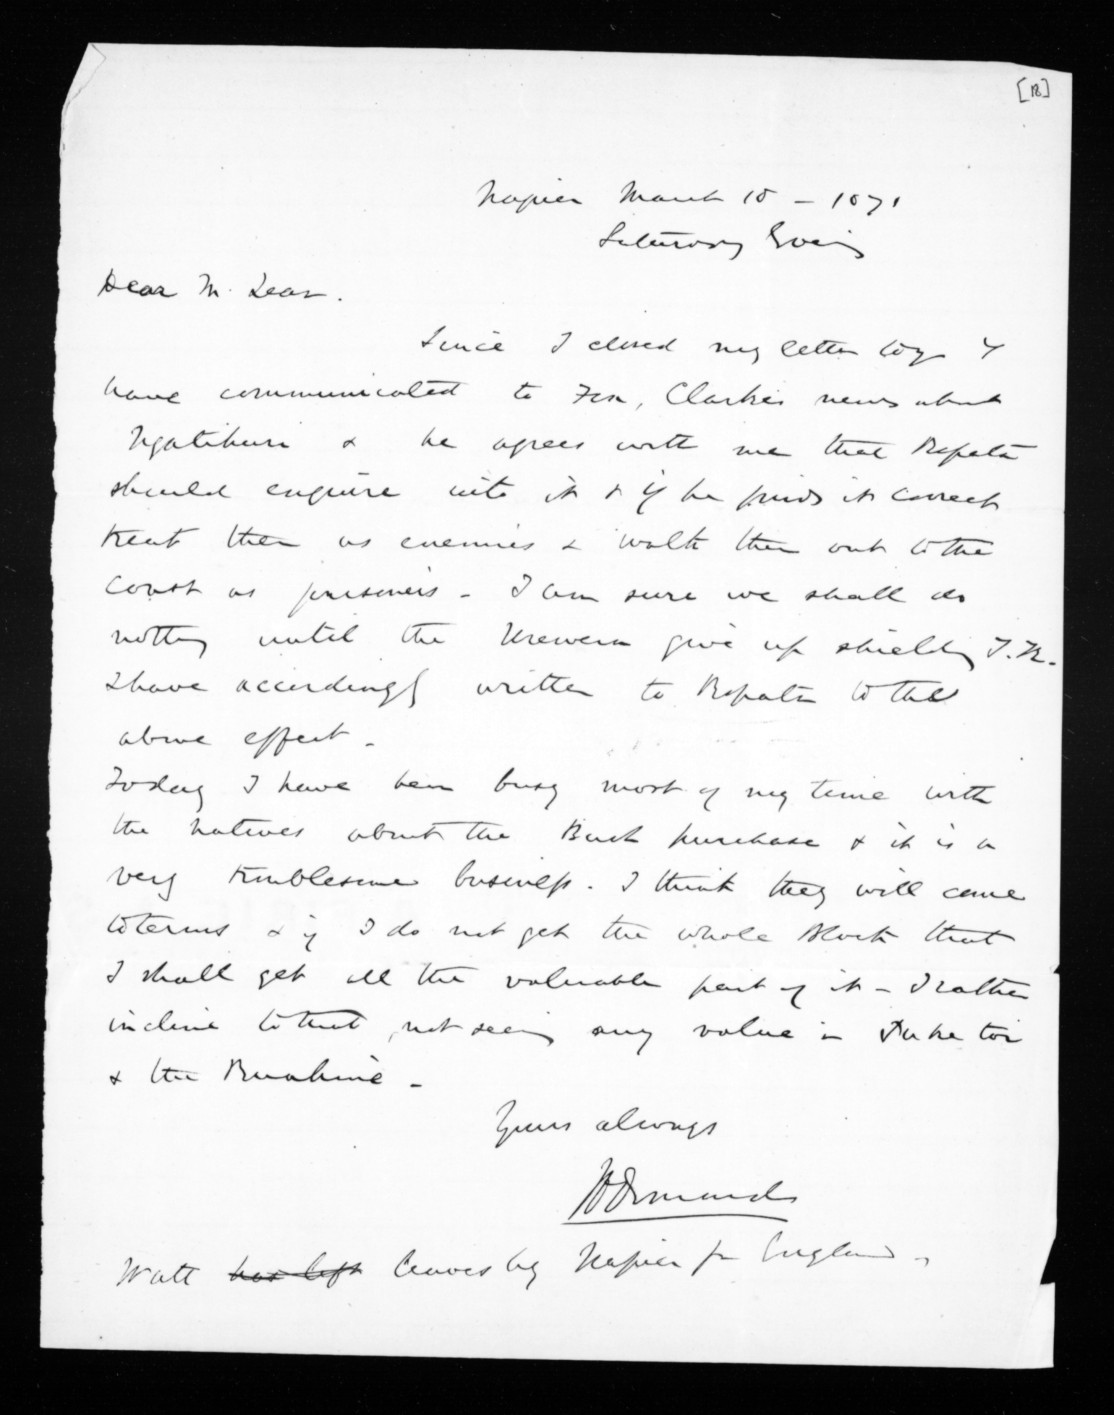 [18]
Napier March 18 - 1871
Saturday Evening
Dear McLean.
Since I closed my letter today I
have communicated to Fox, Clarkes news about
Ngatihuri & he agrees with me that Ropata
should enquire into it & if he finds it correct
treat them as enemies & walk them out to the
coast as prisoners - I am sure we shall do
nothing until the Urewera give up shielding T.K.
I have accordingly written to Ropata to the
above effect -
Today I have been busy most of my time with
the natives about the Bush purchase & it is a
very troublesome business. I think they will come
to terms & if I do not get the whole Block that
I shall get all the valuable part of it - I rather
incline to that, not seeing any value in Puke toi
& the Ruahine -
Yours always
JDOrmond
Watt has left leaves by Napier for England -